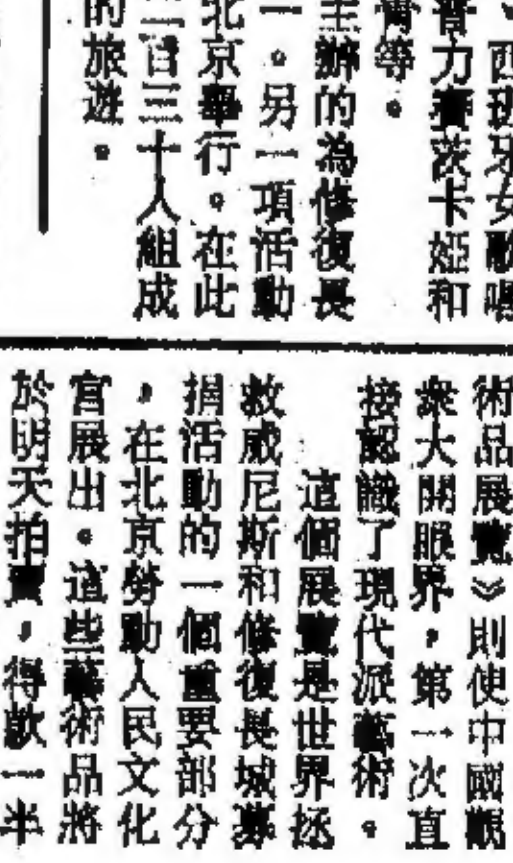 西班牙女歌唱
普力賽茨卡婭和
等。
主辦的為修復長
一。另一項活動
北京舉行。在此
二百三十人組成
的旅遊。
術品展覽》則使中國觀
眾大開眼界，第一次直
接認識了現代派藝術。
這個展覽是世界拯
救威尼斯和修復長城募
捐活動的一個重要部分
，在北京勞動人民文化
宮展出。這些藝術品將
於明天拍賣，得款一半